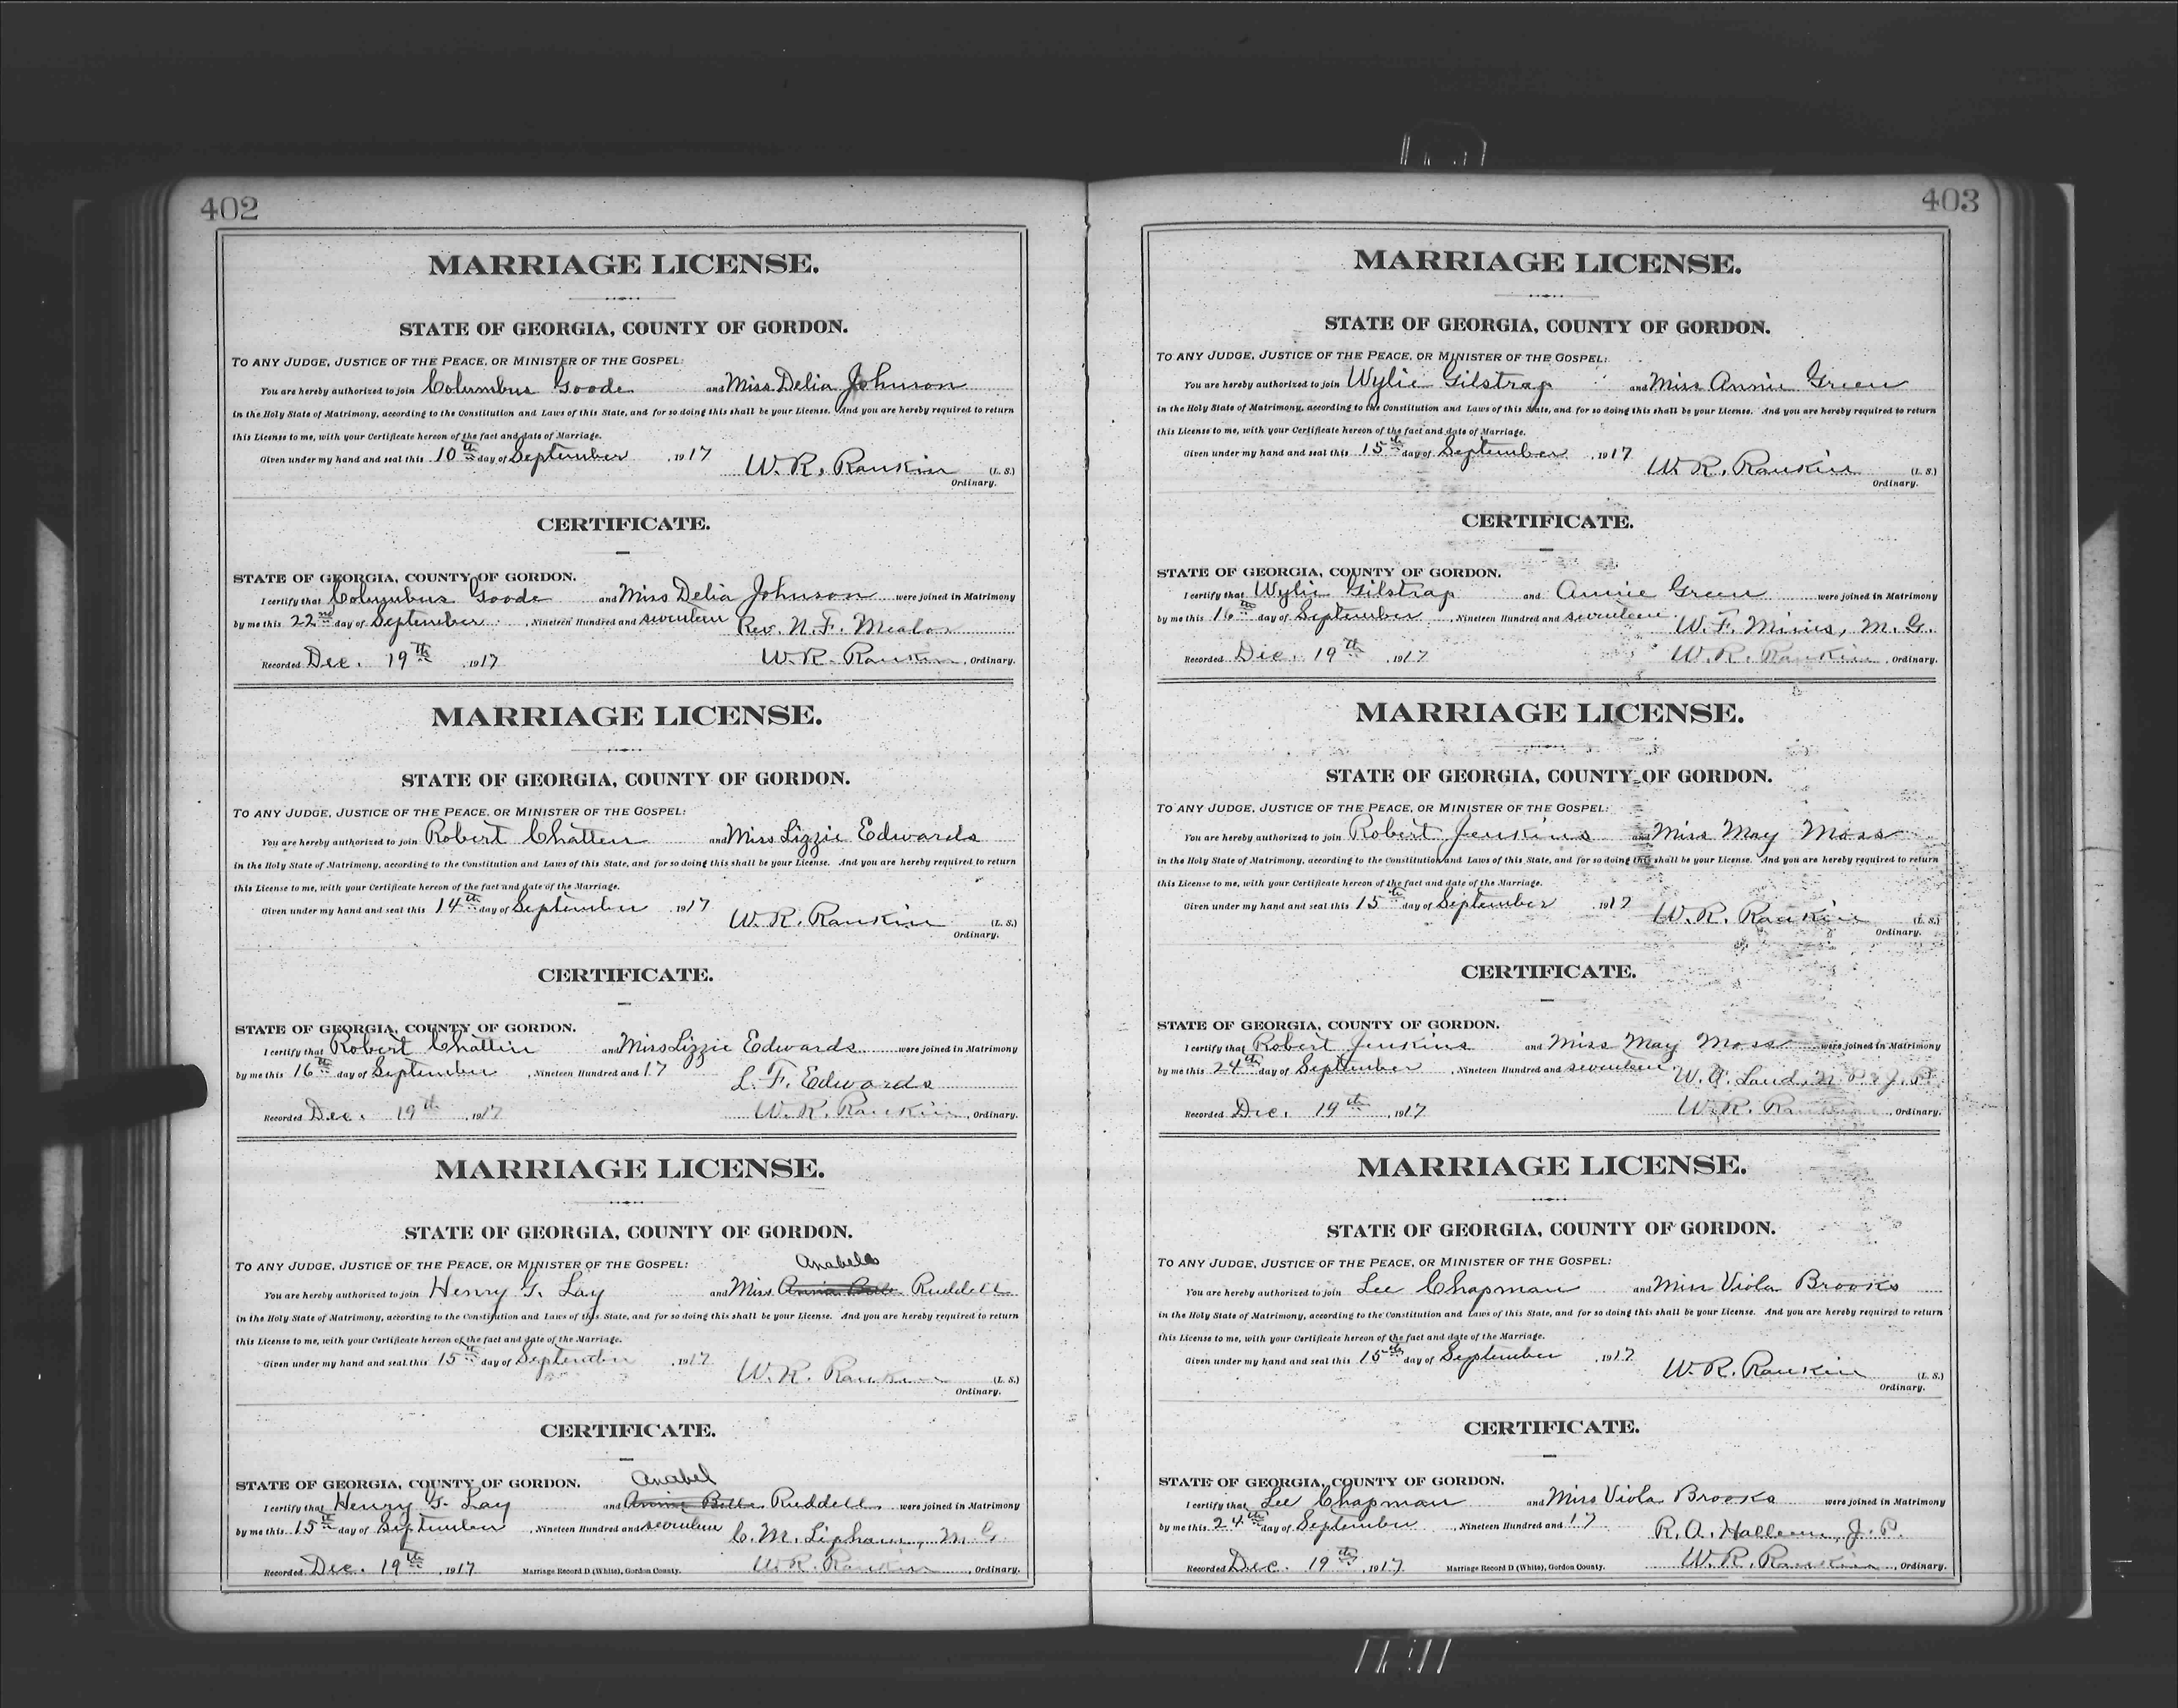 402
MARRIAGE LICENSE.
STATE OF GEORGIA, COUNTY OF GORDON.
TO ANY JUDGE, JUSTICE OF THE PEACE, OR MINISTER OF THE GOSPEL:
You are hereby authorized to join Columbus Goode and Miss Delia Johnson
in the Holy State of Matrimony, according to the Constitution and Laws of this State, and for so doing this shall be your License. And you are hereby required to return
this License to me, with your Certificate hereon of the fact and date of Marriage.
Given under my hand and seal this 10th day of September 1917 W. R. Rankin (L. S.)
Ordinary.
CERTIFICATE.
STATE OF GEORGIA, COUNTY OF GORDON.
I certify that Columbus Goode and Miss Delia Johnson were joined in Matrimony
by me this 22nd day of September, Nineteen Hundred and seventeen Rev. N. F. Mealor
Recorded Dec. 19th, 1917 W. R. Rankin, Ordinary.
MARRIAGE LICENSE.
STATE OF GEORGIA, COUNTY OF GORDON.
TO ANY JUDGE, JUSTICE OF THE PEACE, OR MINISTER OF THE GOSPEL:
You are hereby authorized to join Robert Chatten and Miss Lizzie Edwards
in the Holy State of Matrimony, according to the Constitution and Laws of this State, and for so doing this shall be your License. And you are hereby required to return
this License to me, with your Certificate hereon of the fact and date of the Marriage.
Given under my hand and seal this 14th day of September, 1917 W. R. Rankin (L. S.)
Ordinary.
CERTIFICATE.
STATE OF GEORGIA, COUNTY OF GORDON.
I certify that Robert Chattin and Miss Lizzie Edwards were joined in Matrimony
by me this 16th day of September, Nineteen Hundred and 17 L. F. Edwards
Recorded Dec. 19th, 1917 W. R. Rankin, Ordinary.
MARRIAGE LICENSE.
STATE OF GEORGIA, COUNTY OF GORDON.
Anabele
TO ANY JUDGE, JUSTICE OF THE PEACE, OR MINISTER OF THE GOSPEL:
You are hereby authorized to join Henry G. Lay and Miss Annie Belle Ruddell
in the Holy State of Matrimony, according to the Constitution and Laws of this State, and for so doing this shall be your License. And you are hereby required to return
this License to me, with your Certificate hereon of the fact and date of the Marriage.
Given under my hand and seal this 15th day of September, 1917 W. R. Rankin (L. S.)
Ordinary.
CERTIFICATE.
Anabel
STATE OF GEORGIA, COUNTY OF GORDON.
I certify that Henry G. Lay and Annie Belle Ruddell were joined in Matrimony
by me this 15th day of September, Nineteen Hundred and seventeen C. M. Lipham, M. G.
Recorded Dec. 19th 1917 Marriage Record D (White), Gordon County. W. R. Rankin, Ordinary.
403
MARRIAGE LICENSE.
STATE OF GEORGIA, COUNTY OF GORDON.
TO ANY JUDGE, JUSTICE OF THE PEACE, OR MINISTER OF THE GOSPEL:
You are hereby authorized to join Wylie Gilstrap and Miss Annie Green
in the Holy State of Matrimony, according to the Constitution and Laws of this State, and for so doing this shall be your License. And you are hereby required to return
this License to me, with your Certificate hereon of the fact and date of Marriage.
Given under my hand and seal this 15th day of September, 1917 W. R. Rankin (L. S.)
Ordinary.
CERTIFICATE.
STATE OF GEORGIA, COUNTY OF GORDON.
I certify that Wylie Gilstrap and Annie Green were joined in Matrimony
by me this 16th day of September, Nineteen Hundred and seventeen W. F. Mims, M. G.
Recorded Dec. 19th, 1917 W. R. Rankin, Ordinary.
MARRIAGE LICENSE.
STATE OF GEORGIA, COUNTY OF GORDON.
TO ANY JUDGE, JUSTICE OF THE PEACE, OR MINISTER OF THE GOSPEL:
You are hereby authorized to join Robert Jenkins and Miss May Moss
in the Holy State of Matrimony, according to the Constitution and Laws of this State, and for so doing this shall be your License. And you are hereby required to return
this License to me, with your Certificate hereon of the fact and date of the Marriage.
Given under my hand and seal this 15th day of September, 1917 W. R. Rankin (L. S.)
Ordinary.
CERTIFICATE.
STATE OF GEORGIA, COUNTY OF GORDON.
I certify that Robert Jenkins and Miss May Moss were joined in Matrimony
by me this 24th day of September, Nineteen Hundred and seventeen W. A. Land, N. P. & J. P.
Recorded Dec. 19th, 1917 W. R. Rankin, Ordinary.
MARRIAGE LICENSE.
STATE OF GEORGIA, COUNTY OF GORDON.
TO ANY JUDGE, JUSTICE OF THE PEACE, OR MINISTER OF THE GOSPEL:
You are hereby authorized to join Lee Chapman and Miss Viola Brooks
in the Holy State of Matrimony, according to the Constitution and Laws of this State, and for so doing this shall be your License. And you are hereby required to return
this License to me, with your Certificate hereon of the fact and date of the Marriage.
Given under my hand and seal this 15th day of September, 1917 W. R. Rankin (L. S.)
Ordinary.
CERTIFICATE.
STATE OF GEORGIA, COUNTY OF GORDON.
I certify that Lee Chapman and Miss Viola Brooks were joined in Matrimony
by me this 24th day of September, Nineteen Hundred and 17 R. A. J. P.
Recorded Dec. 19th, 1917 Marriage Record D (White), Gordon County. W. R. Rankin, Ordinary.